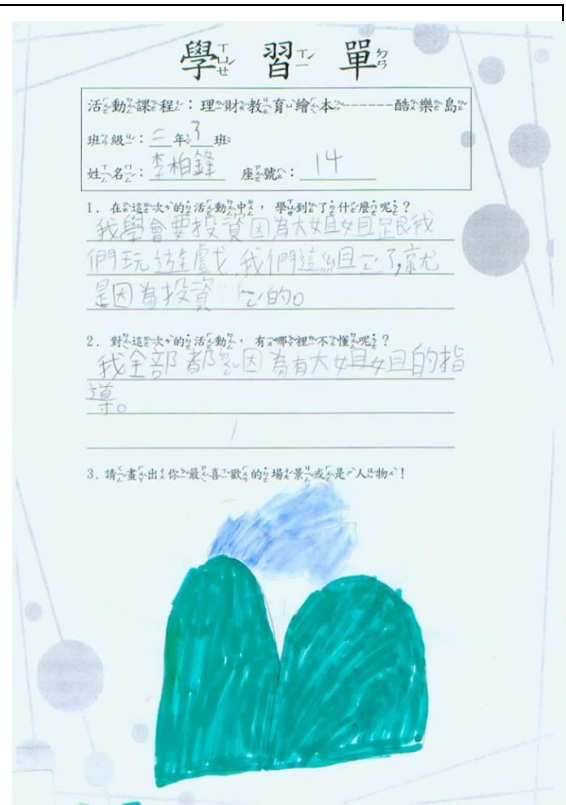 學習單
活動課程：理財教育繪本------酷樂島
班級：二年3班
姓名：李柏鋒 座號：14
1. 在這次的活動中，學到了什麼呢？
我學會要投資因為大姐姐跟我
們玩遊戲,我們這組ㄥ了,就
是因為投資 的。
2. 對這次的活動，有哪裡不懂呢？
我全部都 因為有大姐姐的指
導。
3. 請畫出你最喜歡的場景或是人物！